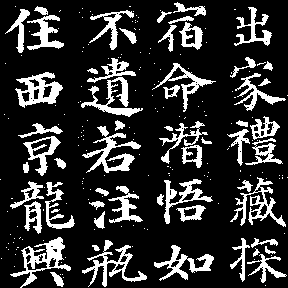 出家禮藏探
宿命潛悟如
不遺若注瓶
住西京龍興